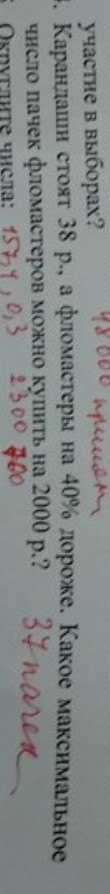 48000 пришли
участие в выборах?
Карандаши стоят 38 р., а фломастеры на 40% дороже. Какое максимальное
число пачек фломастеров можно купить на 2000 р.? 37 пачек
Округлите числа: 157,1, 0,3 2300